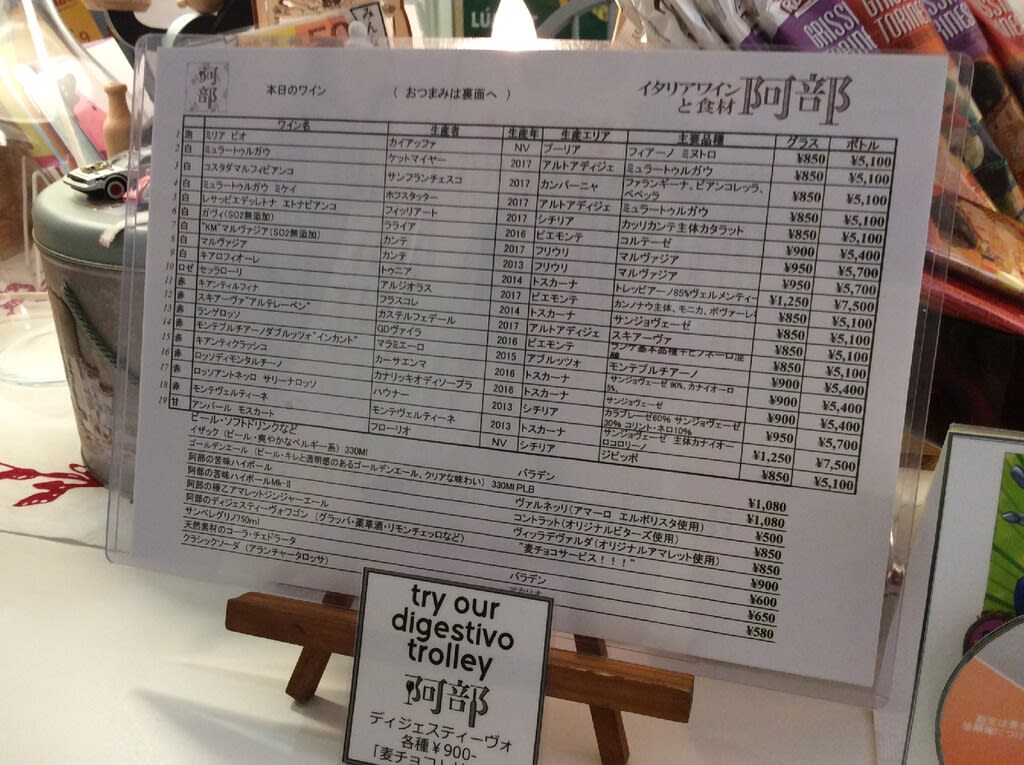 阿部
本日のワイン
( おつまみは裏面へ )
イタリアワインと食材 阿部
ワイン名 生産者 生産年 生産エリア 主要品種 グラス ボトル
1 泡 ミリア ピオ カイアッファ NV プーリア フィアーノ ミヌトロ ¥850 ¥5,100
2 白 ミュラートゥルガウ ケットマイヤー 2017 アルトアディジェ ミュラートゥルガウ ¥850 ¥5,100
3 白 コスタダマルフィビアンコ サンフランチェスコ 2017 カンパーニャ ファランギーナ、ビアンコレッラ、ペペッラ ¥850 ¥5,100
4 白 ミュラートゥルガウ ミケイ ホフスタッター 2017 アルトアディジェ ミュラートゥルガウ ¥850 ¥5,100
5 白 レサッピエデットナ エトナビアンコ フィッリアート 2017 シチリア カッリカンテ主体カタラット ¥850 ¥5,100
6 白 ガヴィ(SO2無添加) ラライア 2016 ピエモンテ コルテーゼ ¥900 ¥5,400
7 白 "KM"マルヴァジア(SO2無添加) カンテ 2017 フリウリ マルヴァジア ¥950 ¥5,700
8 白 マルヴァジア カンテ 2013 フリウリ マルヴァジア ¥950 ¥5,700
9 白 キアロフィオーレ トゥニア 2014 トスカーナ トレッビアーノ85%ヴェルメンティー ¥1,250 ¥7,500
10 ロゼ セッラローリ アルジオラス 2017 カンノナウ主体、モニカ、ボヴァーレ ¥850 ¥5,100
11 赤 キアンティルフィナ フラスコレ 2014 トスカーナ サンジョヴェーゼ ¥850 ¥5,100
12 赤 スキアーヴァ"アルテレーベン" カステルフェデール 2017 アルトアディジェ スキアーヴァ ¥850 ¥5,100
13 赤 ランゲロッソ GDヴァイラ 2016 ピエモンテ ¥850 ¥5,100
14 赤 モンテプルチアーノダブルッツォ"インカント" マラミエーロ 2015 アブルッツォ モンテプルチアーノ ¥900 ¥5,400
15 赤 キアンティクラッシコ カーサエンマ 2016 トスカーナ サンジョヴェーゼ 90%、カナイオーロ ¥900 ¥5,400
16 赤 ロッソディモンタルチーノ カナリッキオディソープラ 2016 トスカーナ サンジョヴェーゼ ¥900 ¥5,400
17 赤 ロッソアントネッロ サリーナロッソ ハウナー 2013 シチリア カラブレーゼ60% サンジョヴェーゼ30% コリント・ネロ10% ¥950 ¥5,700
18 赤 モンテヴェルティーネ モンテヴェルティーネ 2013 トスカーナ サンジョヴェーゼ 主体カナイオーロコロリーノ ¥1,250 ¥7,500
19 甘 アンバール モスカート フローリオ NV シチリア ジビッボ ¥850 ¥5,100
ビール・ソフトドリンクなど
イザック(ビール・爽やかなベルギー系) 330Ml バラデン ¥1,080
ゴールデンエール (ビール・キレと透明感のあるゴールデンエール、クリアな味わい) 330Ml PLB ¥1,080
阿部の苦味ハイボール ヴァルネッリ(アマーロ エルボリスタ使用) ¥500
阿部の苦味ハイボールMk-II コントラット(オリジナルビターズ使用) ¥850
阿部の極乙アマレットジンジャーエール ヴィッラデヴァルダ(オリジナルアマレット使用) ¥850
阿部のディジェスティーヴォワゴン (グラッパ・薬草酒・リモンチェッロなど) "麦チョコサービス！！！" ¥900
サンペレグリノ750ml ¥600
天然素材のコーラ・チェドラータ バラデン ¥650
クラシックソーダ (アランチャータロッサ) ¥580
try our
digestivo
trolley
阿部
ディジェスティーヴォ
各種¥900-